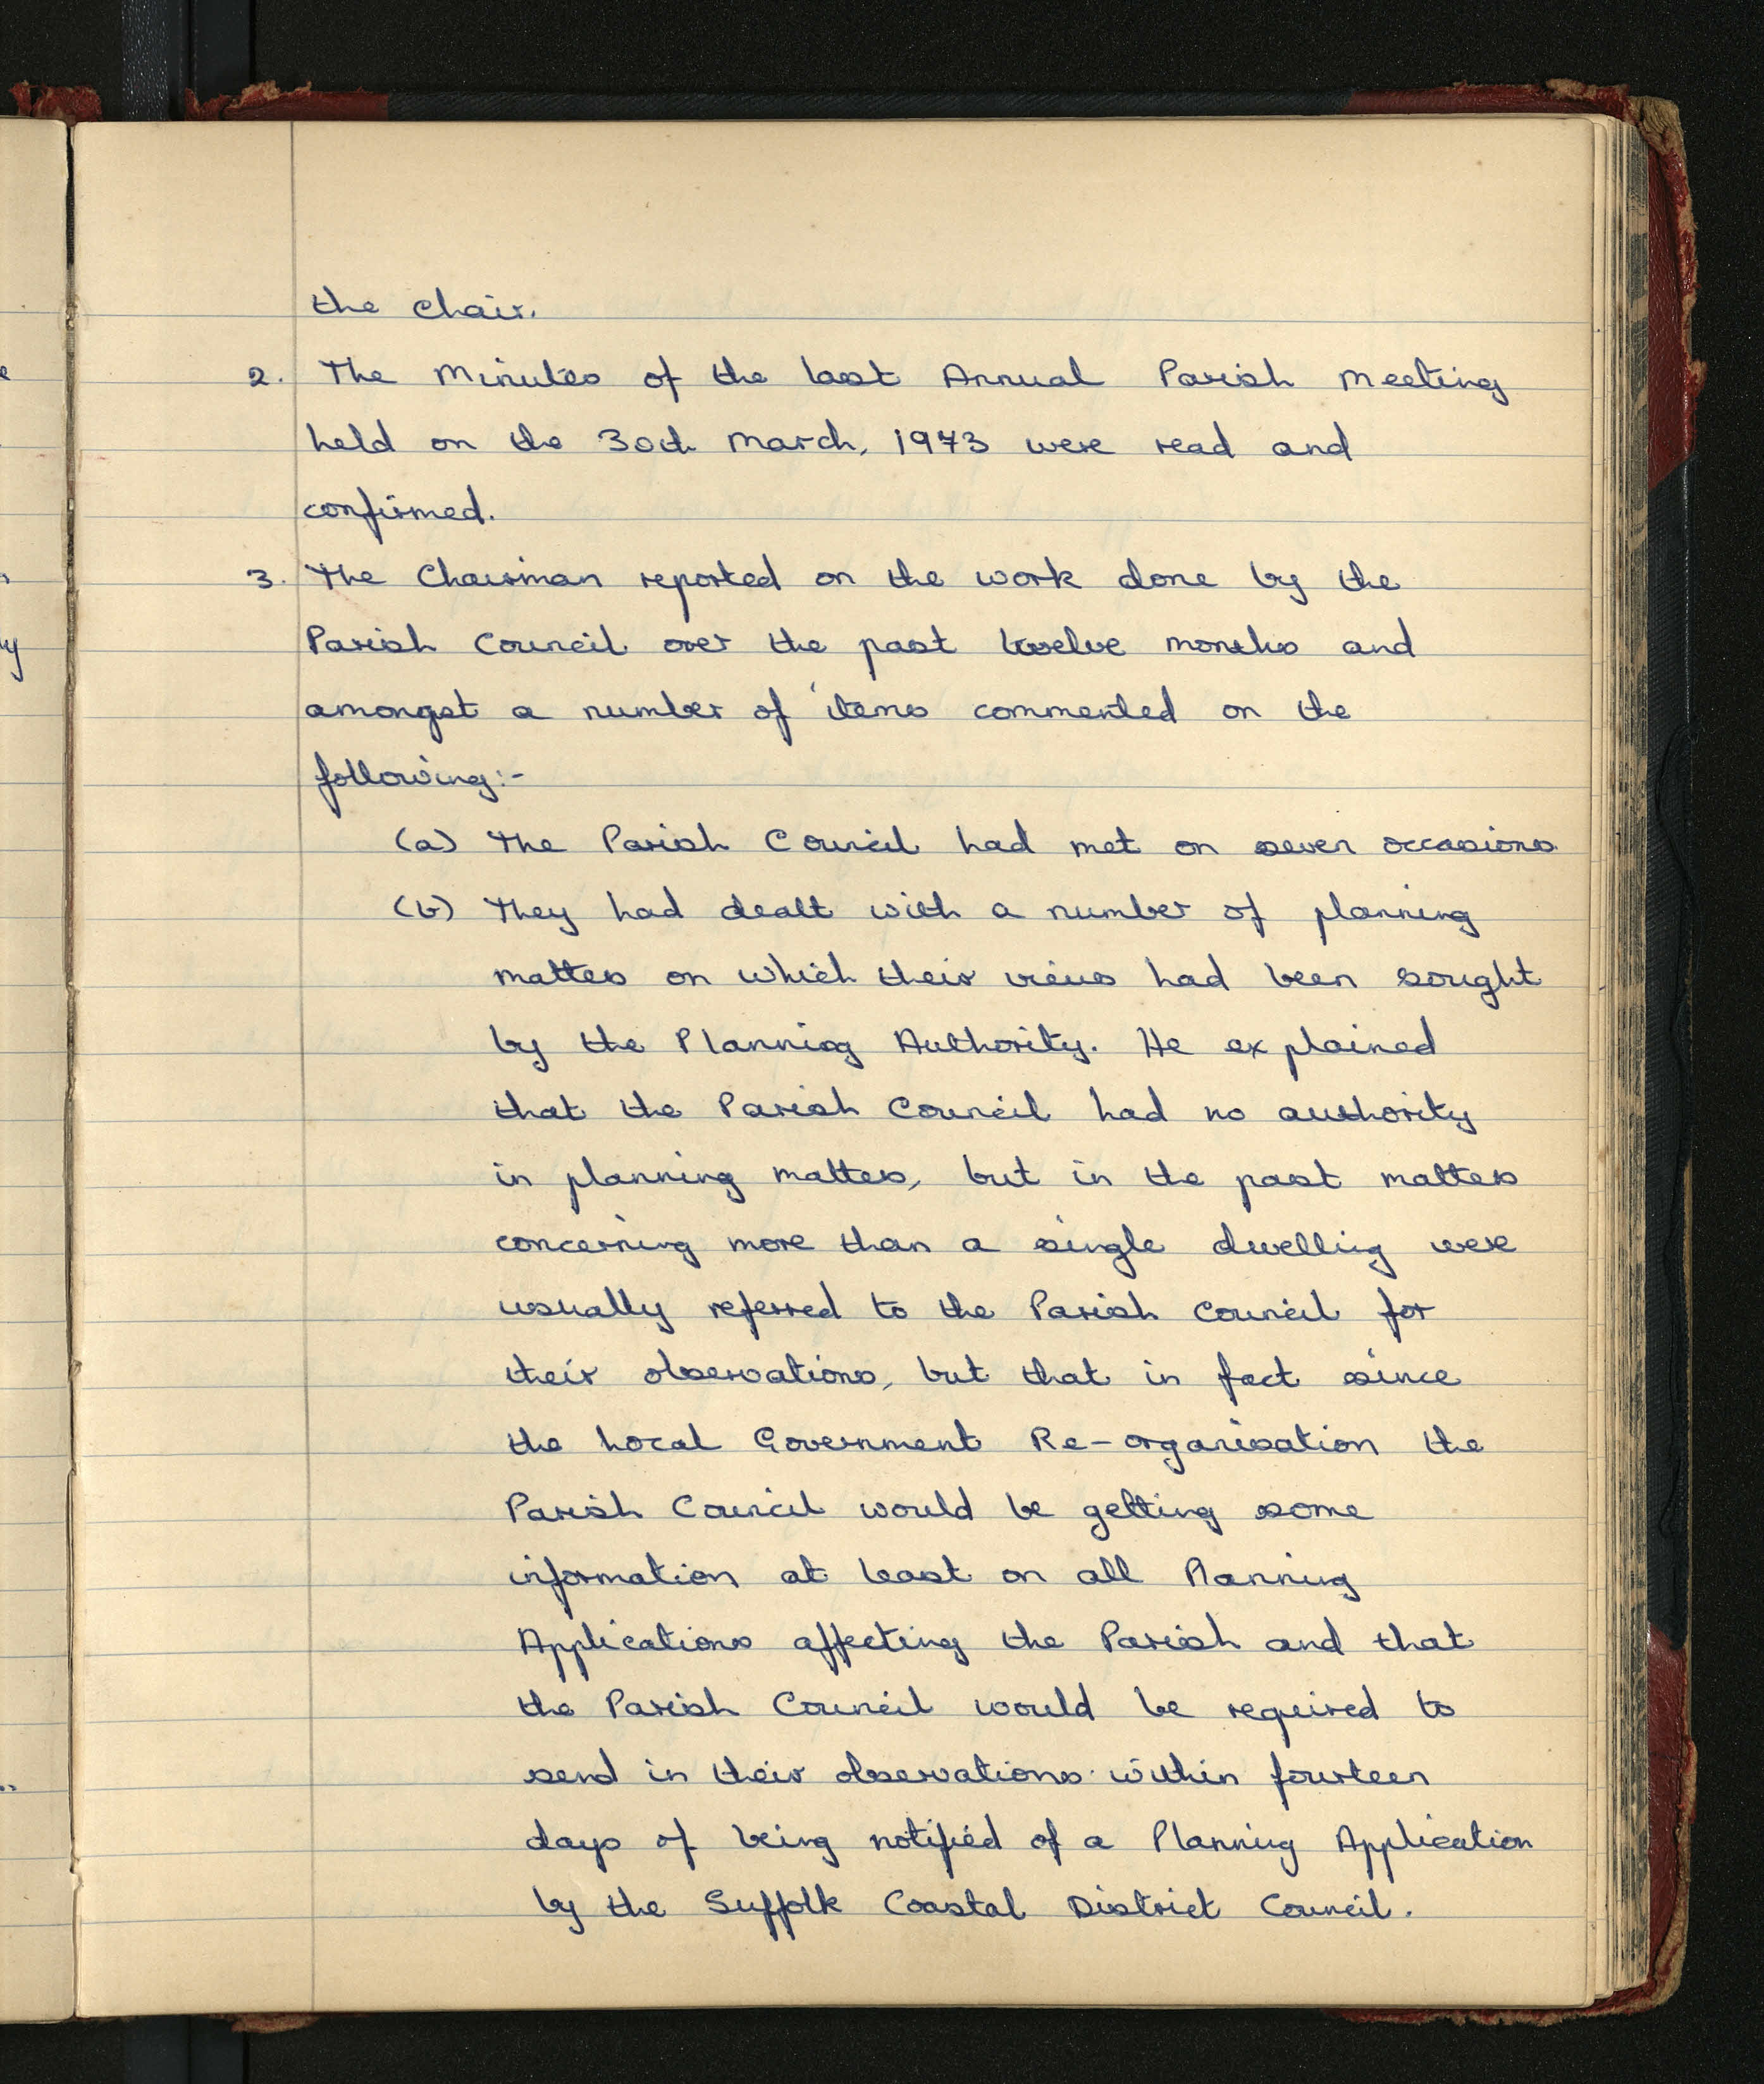 the Chair.
2. The Minutes of the last Annual Parish Meeting
held on the 30th March, 1973 were read and
confirmed.
3. The Chairman reported on the work done by the
Parish Council over the past twelve months and
amongst a number of items commented on the
following:-
(a) The Parish Council had met on seven occasions.
(b) They had dealt with a number of planning
matters on which their views had been sought
by the Planning Authority. He explained
that the Parish Council had no authority
in planning matters, but in the past matters
concerning more than a single dwelling were
usually referred to the Parish Council for
their observations, but that in fact since
the Local Government Re-organisation the
Parish Council would be getting some
information at least on all Planning
Applications affecting the Parish and that
the Parish Council would be required to
send in their observations within fourteen
days of being notified of a Planning Application
by the Suffolk Coastal District Council.